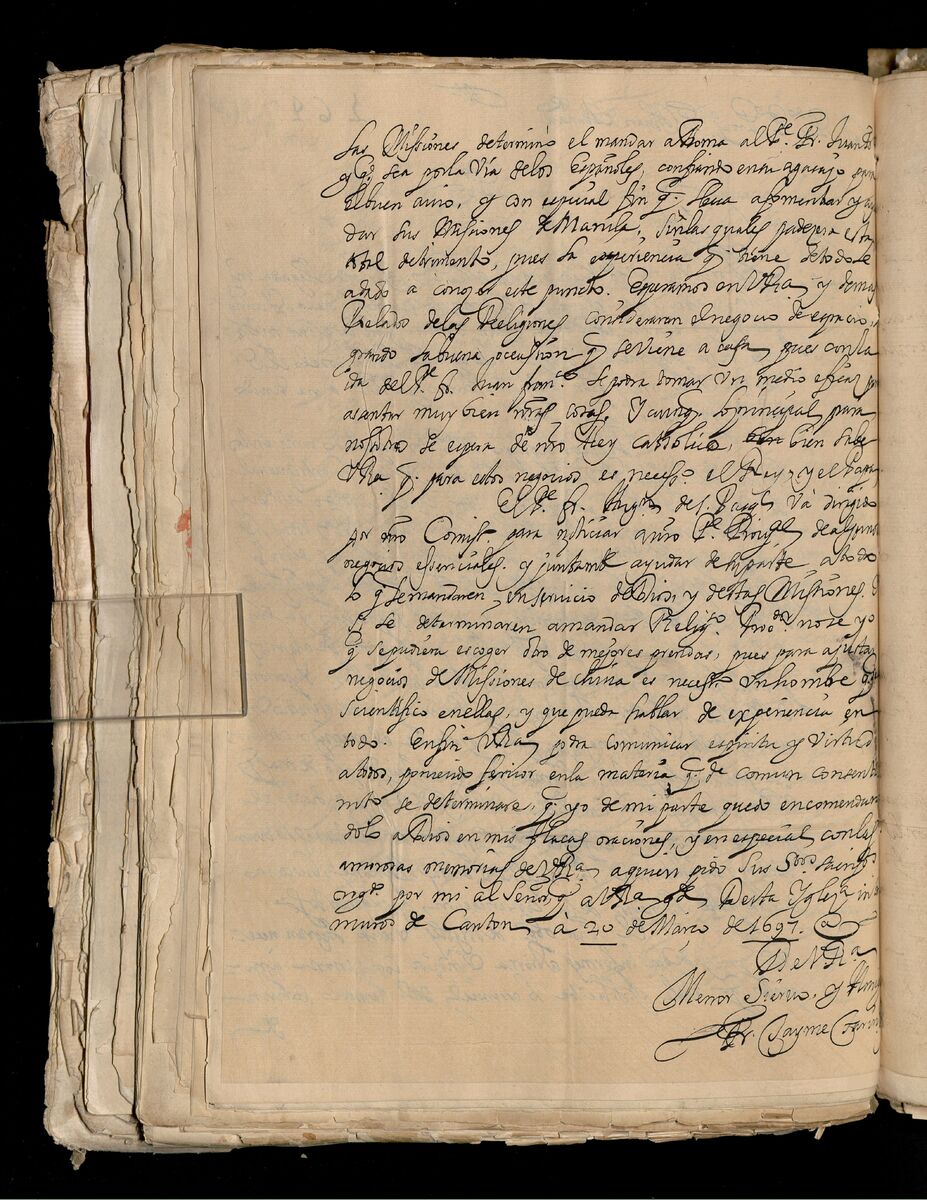 las Missiones determino el mandar a Roma al Pe. Fr. Juan
y qe. sea por la Via de los Españoles, confiando en su agasajo para
el buen avio, y con especial fin q. lleva a fomentar y ayu
dar sus Misiones de Manila, sin las quales padeceria esta
detrimento, pues la experiencia q tiene de todo le
a dado a conozer este puncto. Esperamos en VRa y demas
Prelados de las Religiones consideraren el negocio de espacio,
la buena occasion q se viene a casa, pues con la
ida del Pe. fr. Juan franco. se podra tomar un medio eficaz pa
asentar muy bien nras cosas. Y aunq. lo principal para
nosotros se espera de nro Rey Catholico, bien sabe
VRa q. para estos negocios es necesso. el Rey, y el Papa.
El Pe. fr. de S. Pasql. Va dirigido
por nro Comisso. para noticiar a nro Pe. Provl. de algunos
negocios essenciales. y juntamte. ayudar de su parte, a todo
lo q le mandaren, en servicio de Dios, y destas Missiones.
q se determinaren a mandar Religso. no se yo
q se pudiera escoger otro de mejores prendas, pues para ajustar
negocios de Missiones de china es necesso. un hombre
Scientifico en ellas, y que pueda hablar de experiencia en
todo. En fin VRa podra comunicar espiritu y virtud
a todos, poniendo fervor en la materia q. de comun consenti
mto se determinare, q. yo de mi parte quedo encomendan
dolo a Dios en mis flacas oraciones, y en especial con las
amorosas memorias de VRa. a quien pido sus Stos. sacrifos.
rugue. por mi al Señor q. a VRa. gde. Desta Yglesa. intra
muros de Canton à 20 de Março de 1697.
De VRa.
Menor Siervo, y
Fr. Jayme